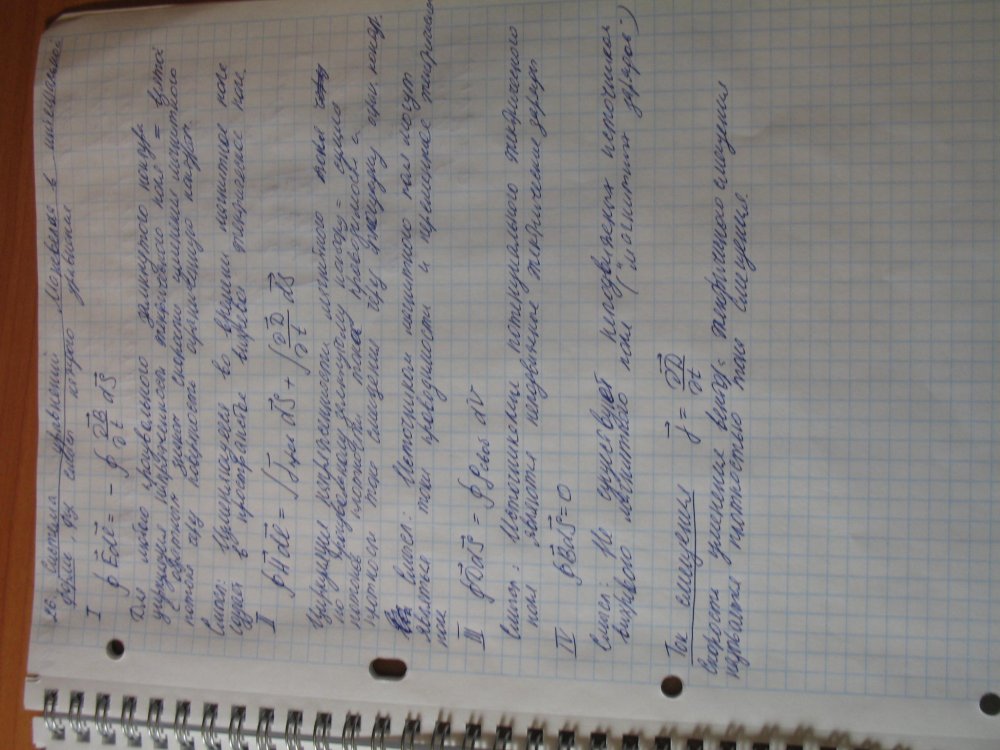 26. Система уравнений Максвелла в интегральной
форме, физ смысл каждого уравнения
I ∮ E⃗ dℓ⃗ = - ∮ ∂B⃗/∂t dS⃗
Для любого произвольного замкнутого контура
циркуляция напряженности электрического поля = взятой
с обратным знаком скорости изменения магнитного
потока через поверхность ограниченную контуром.
Смысл: Изменяющееся во времени магнитное поле
создает в пространстве вихревое электрическое поле
II ∮ H⃗ dℓ⃗ = ∫ j⃗ пров dS⃗ + ∫ ∂D⃗/∂t dS⃗
Циркуляция напряженности магнитного поля
по произвольному замкнутому контуру = сумме
потоков плотности тока проводимости и
плотности тока смещения через площадку огран. контур.
Смысл: Источником магнитного поля могут
являться токи проводимости и переменное электрическое
поле
III ∮ D⃗ dS⃗ = ∮ ρ своб dV
Смысл: Источником потенциального электрического
поля являются неподвижные электрические заряды
IV ∮ B⃗ dS⃗ = 0
Смысл: Не существует неподвижных источников
вихревого магнитного поля ("магнитных зарядов")
Ток смещения j⃗ = ∂D⃗/∂t
Скорость изменения вектора электрического смещения
называется плотностью тока смещения.